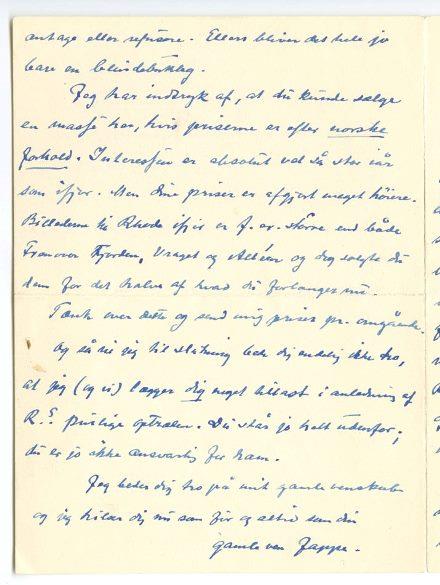 antage eller refusere. Ellers bliver det hele jo
bare en blindebukleg.
Jeg har indtryk af, at du kunde sælge
en masse her, hvis priserne er efter norske
forhold. Interessen er absolut vel så stor iår
som ifjor. Men dine priser er afgjort meget höiere.
Billederne til Rhode ifjor er f. ex. större end både
Fjorden, Vraget og Alléen og dog solgte du
dem for det halve af hvad du forlanger nu.
Tænk over dette og send mig priser pr. omgående.
Og så vil jeg til slutning bede dig endelig ikke tro,
at jeg (og vi) lægger dig noget tillast i anledning af
R.s pudsige optræden. Du står jo helt udenfor;
du er jo ikke ansvarlig for ham.
Jeg beder dig tro på mit gamle venskab
og jeg hilser dig nu som för og altid som din
gamle ven Jappe.